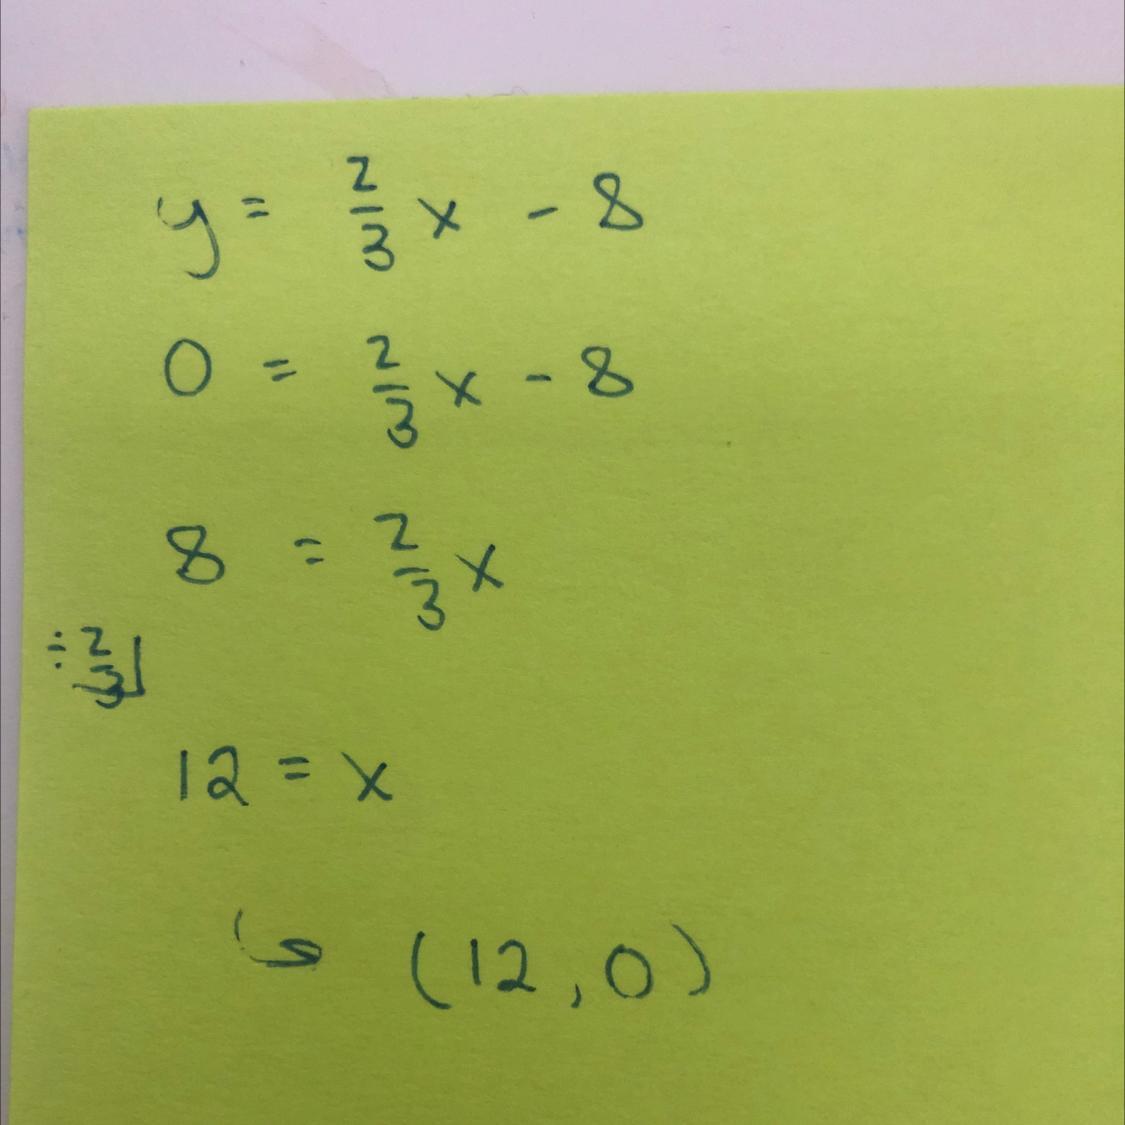 y = 2/3 x - 8
0 = 2/3 x - 8
8 = 2/3 x
÷ 2/3
12 = x
↳ (12, 0)